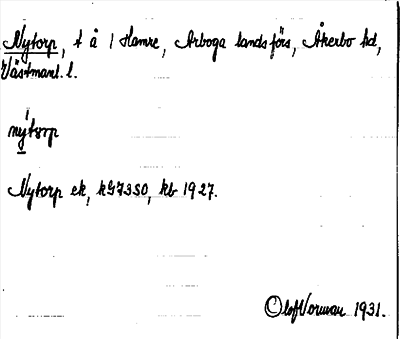 Nytorp, t å 1 Hamre, Arboga landsförs, Åkerbo hd,
Västmanl. l.
nytorp
Nytorp ek, kG7350, kb 1927.
Olof Norman 1931.